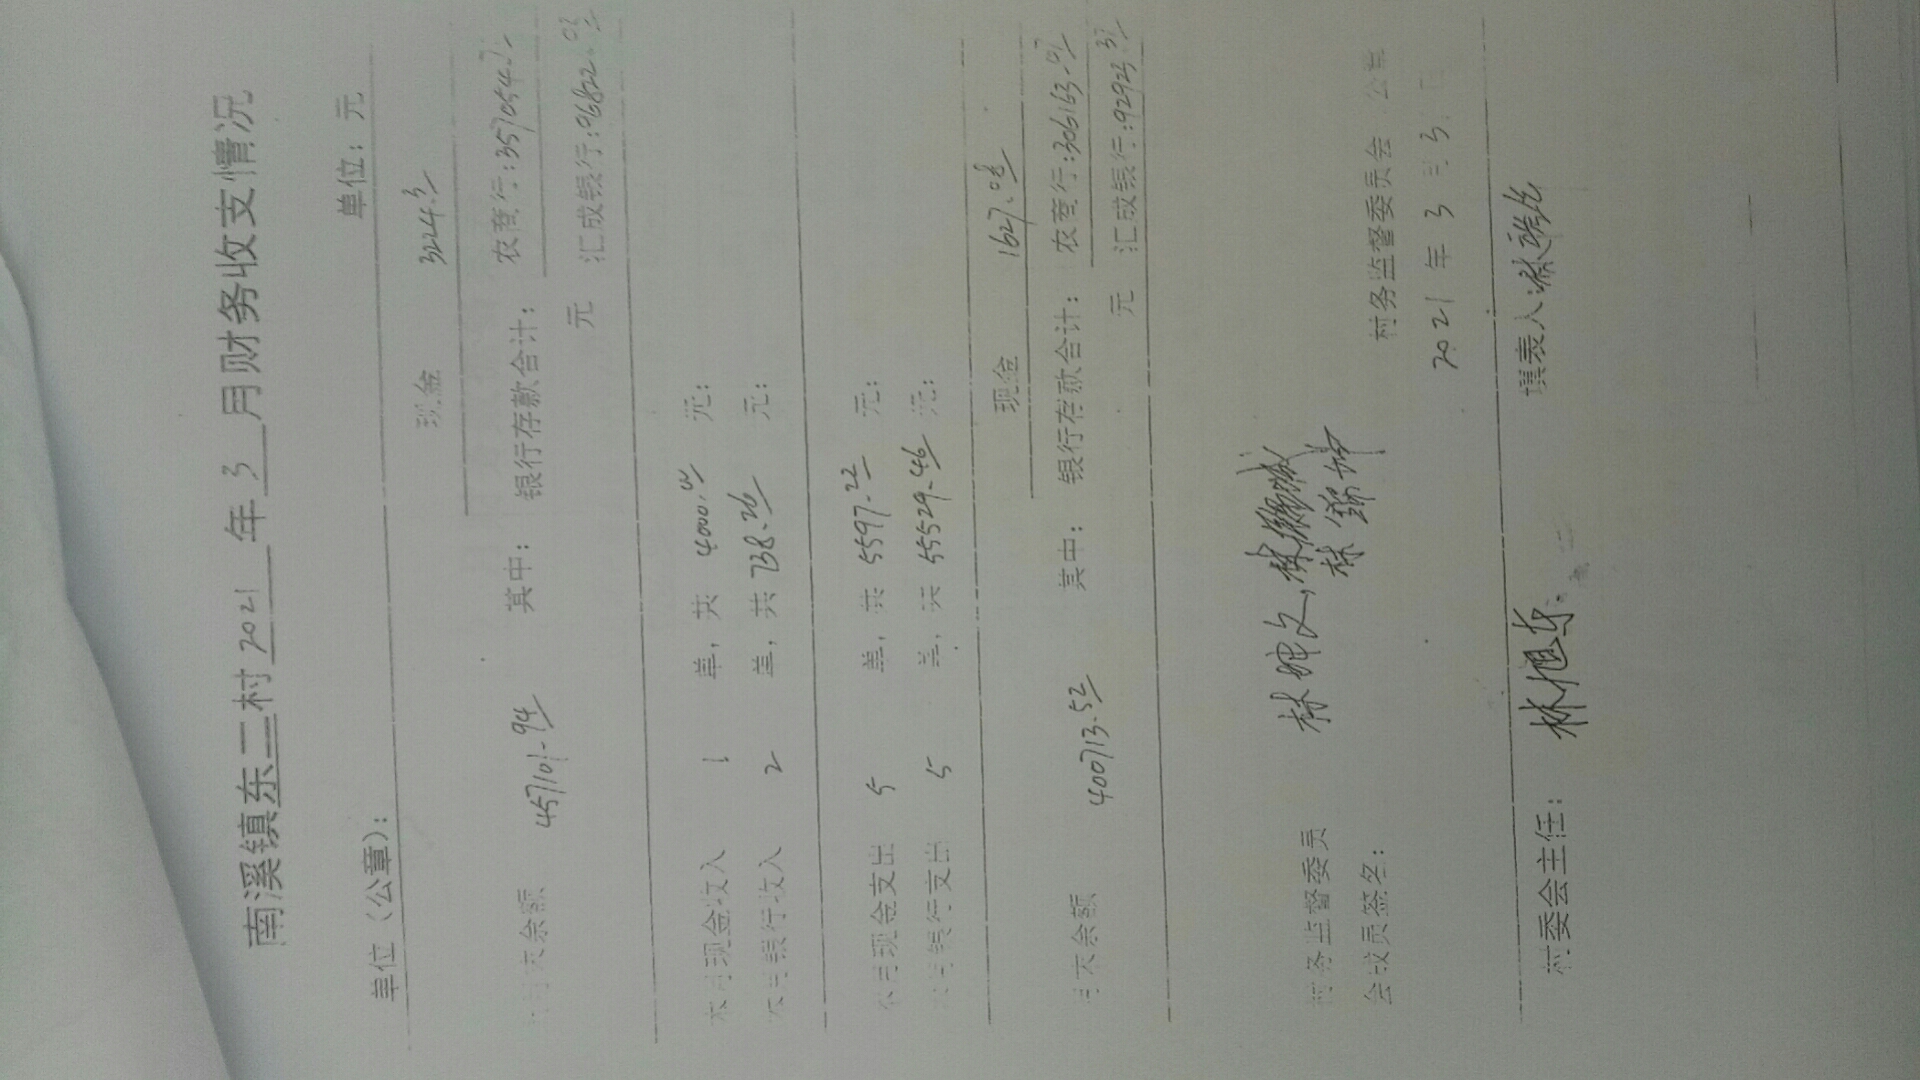 南溪镇东二村 2021 年 3 月财务收支情况
单位（公章）： 单位：元
现金 3224.3
余额 457101.94 其中： 银行存款合计： 农商行:357054.71
元 汇成银行:96822.93
本月现金收入 1 单，共 4000.00 元：
本月银行收入 2 单，共 738.26 元：
本月现金支出 5 单，共 5597.22 元：
本月银行支出 5 单，共 55529.46 元：
现金 1627.08
月末余额 400713.52 其中： 银行存款合计： 农商行:306163.07
元 汇成银行:92923.37
村务监督委员 林坤文，林
会成员签名： 林
村务监督委员会 公章
2021 年 3 月 3 日
村委会主任： 林旭东 填表人: